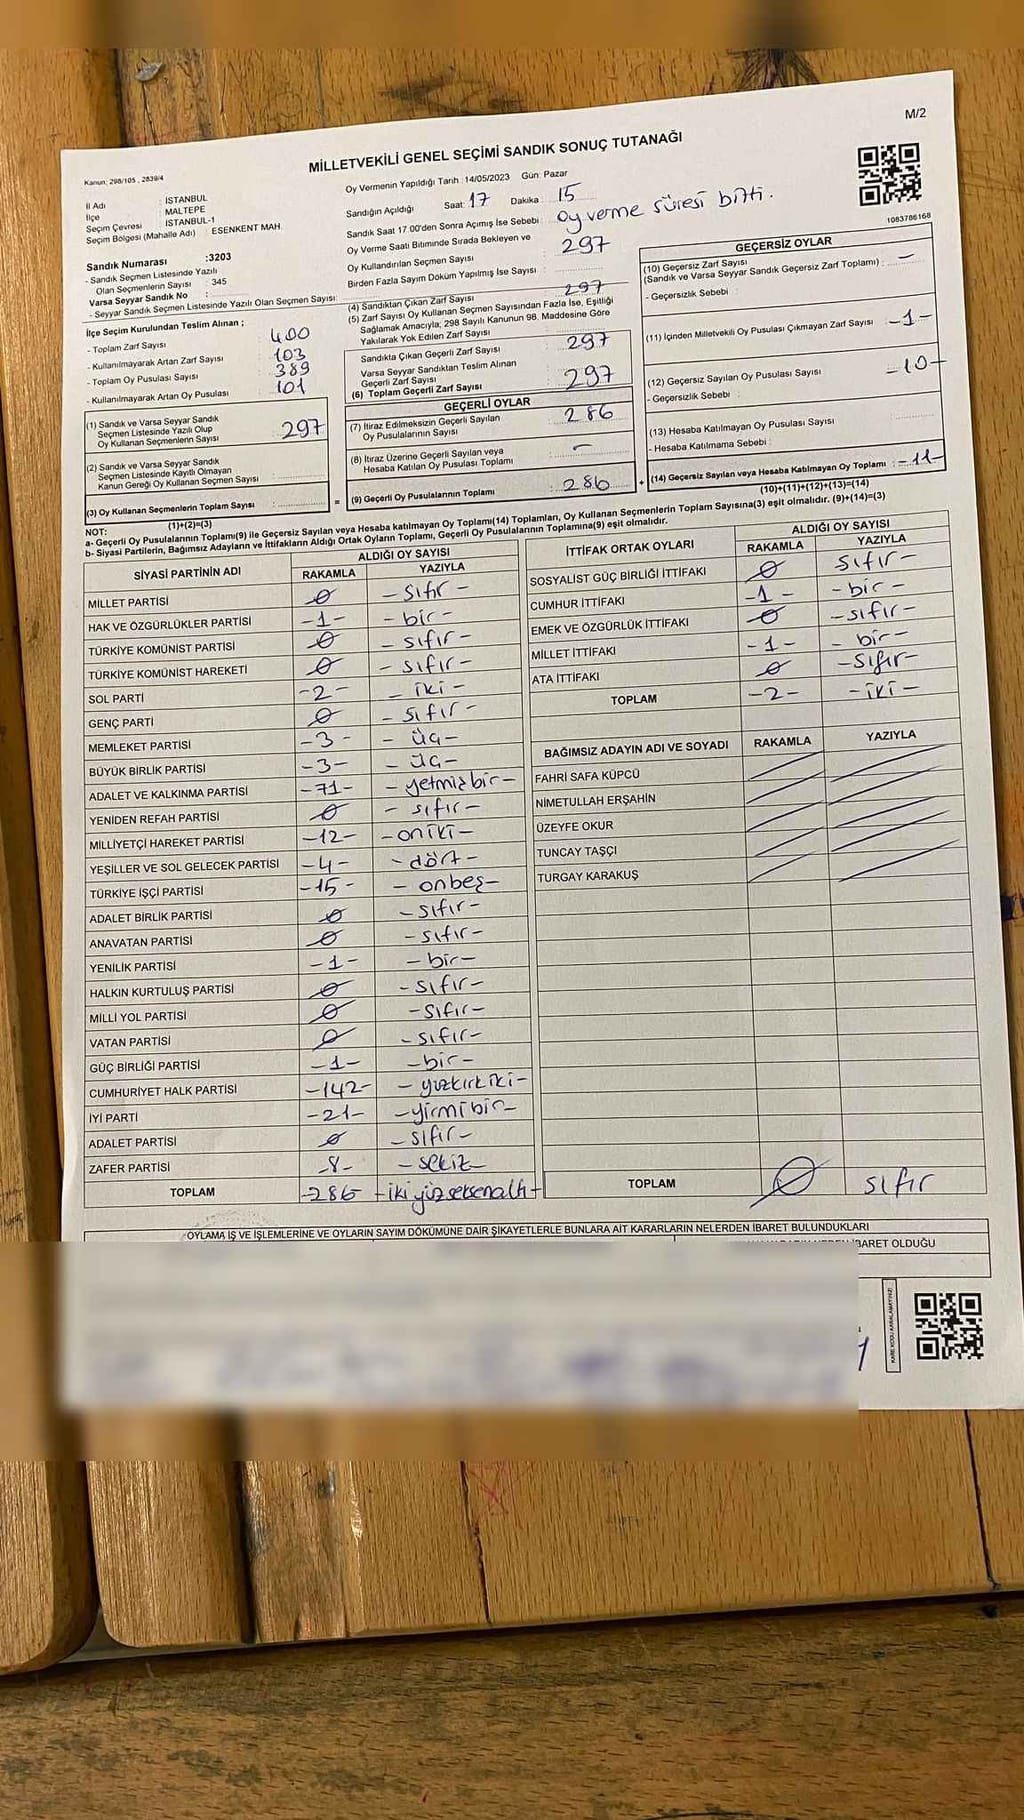 M/2
MİLLETVEKİLİ GENEL SEÇİMİ SANDIK SONUÇ TUTANAĞI
Kanun: 298/105 , 2839/4
İl Adı : İSTANBUL
İlçe : MALTEPE
Seçim Çevresi : İSTANBUL-1
Seçim Bölgesi (Mahalle Adı) ESENKENT MAH.
Sandık Numarası :3203
- Sandık Seçmen Listesinde Yazılı
Olan Seçmenlerin Sayısı : 345
Varsa Seyyar Sandık No :
- Seyyar Sandık Seçmen Listesinde Yazılı Olan Seçmen Sayısı:
İlçe Seçim Kurulundan Teslim Alınan ;
- Toplam Zarf Sayısı : 400
- Kullanılmayarak Artan Zarf Sayısı : 103
- Toplam Oy Pusulası Sayısı : 389
- Kullanılmayarak Artan Oy Pusulası : 101
(1) Sandık ve Varsa Seyyar Sandık
Seçmen Listesinde Yazılı Olup
Oy Kullanan Seçmenlerin Sayısı : 297
(2) Sandık ve Varsa Seyyar Sandık
Seçmen Listesinde Kayıtlı Olmayan
Kanun Gereği Oy Kullanan Seçmen Sayısı :
(3) Oy Kullanan Seçmenlerin Toplam Sayısı :
(1)+(2)=(3)
Oy Vermenin Yapıldığı Tarih :14/05/2023 Gün: Pazar
Sandığın Açıldığı Saat: 17 Dakika : 15
Sandık Saat 17.00'den Sonra Açımış İse Sebebi : oy verme süresi bitti.
Oy Verme Saati Bitiminde Sırada Bekleyen ve
Oy Kullandırılan Seçmen Sayısı : 297
Birden Fazla Sayım Döküm Yapılmış İse Sayısı :
(4) Sandıktan Çıkan Zarf Sayısı : 297
(5) Zarf Sayısı Oy Kullanan Seçmen Sayısından Fazla İse, Eşitliği
Sağlamak Amacıyla; 298 Sayılı Kanunun 98. Maddesine Göre
Yakılarak Yok Edilen Zarf Sayısı
Sandıkta Çıkan Geçerli Zarf Sayısı : 297
Varsa Seyyar Sandıktan Teslim Alınan
Geçerli Zarf Sayısı :
(6) Toplam Geçerli Zarf Sayısı : 297
GEÇERLİ OYLAR
(7) İtiraz Edilmeksizin Geçerli Sayılan
Oy Pusulalarının Sayısı : 286
(8) İtiraz Üzerine Geçerli Sayılan veya
Hesaba Katılan Oy Pusulası Toplamı : -
= (9) Geçerli Oy Pusulalarının Toplamı : 286 +
1083786168
GEÇERSİZ OYLAR
(10) Geçersiz Zarf Sayısı
(Sandık ve Varsa Seyyar Sandık Geçersiz Zarf Toplamı) : -
- Geçersizlik Sebebi :
(11) İçinden Milletvekili Oy Pusulası Çıkmayan Zarf Sayısı -1-
(12) Geçersiz Sayılan Oy Pusulası Sayısı -10-
-Geçersizlik Sebebi :
(13) Hesaba Katılmayan Oy Pusulası Sayısı
- Hesaba Katılmama Sebebi :
(14) Geçersiz Sayılan veya Hesaba Katılmayan Oy Toplamı : -11-
(10)+(11)+(12)+(13)=(14)
NOT:
a- Geçerli Oy Pusulalarının Toplamı(9) ile Geçersiz Sayılan veya Hesaba katılmayan Oy Toplamı(14) Toplamları, Oy Kullanan Seçmenlerin Toplam Sayısına(3) eşit olmalıdır. (9)+(14)=(3)
b- Siyasi Partilerin, Bağımsız Adayların ve İttifakların Aldığı Ortak Oyların Toplamı, Geçerli Oy Pusulalarının Toplamına(9) eşit olmalıdır.
SİYASİ PARTİNİN ADI ALDIĞI OY SAYISI
RAKAMLA YAZIYLA
MİLLET PARTİSİ 0 - sıfır -
HAK VE ÖZGÜRLÜKLER PARTİSİ -1- - bir -
TÜRKİYE KOMÜNİST PARTİSİ 0 - sıfır -
TÜRKİYE KOMÜNİST HAREKETİ 0 - sıfır -
SOL PARTİ -2- - iki -
GENÇ PARTİ 0 - sıfır -
MEMLEKET PARTİSİ -3- - üç -
BÜYÜK BİRLİK PARTİSİ -3- - üç -
ADALET VE KALKINMA PARTİSİ -71- - yetmişbir -
YENİDEN REFAH PARTİSİ 0 - sıfır -
MİLLİYETÇİ HAREKET PARTİSİ -12- - oniki -
YEŞİLLER VE SOL GELECEK PARTİSİ -4- - dört -
TÜRKİYE İŞÇİ PARTİSİ -15- - onbeş -
ADALET BİRLİK PARTİSİ 0 - sıfır -
ANAVATAN PARTİSİ 0 - sıfır -
YENİLİK PARTİSİ -1- - bir -
HALKIN KURTULUŞ PARTİSİ 0 - sıfır -
MİLLİ YOL PARTİSİ 0 - sıfır -
VATAN PARTİSİ 0 - sıfır -
GÜÇ BİRLİĞİ PARTİSİ -1- - bir -
CUMHURİYET HALK PARTİSİ -142- - yüzkırkiki -
İYİ PARTİ -21- - yirmibir -
ADALET PARTİSİ 0 - sıfır -
ZAFER PARTİSİ -8- - sekiz -
TOPLAM -286- - ikiyüzseksenaltı -
İTTİFAK ORTAK OYLARI ALDIĞI OY SAYISI
RAKAMLA YAZIYLA
SOSYALİST GÜÇ BİRLİĞİ İTTİFAKI 0 sıfır -
CUMHUR İTTİFAKI -1- - bir -
EMEK VE ÖZGÜRLÜK İTTİFAKI 0 - sıfır -
MİLLET İTTİFAKI -1- - bir -
ATA İTTİFAKI 0 - sıfır -
TOPLAM -2- - iki -
BAĞIMSIZ ADAYIN ADI VE SOYADI RAKAMLA YAZIYLA
FAHRİ SAFA KÜPCÜ
NİMETULLAH ERŞAHİN
ÜZEYFE OKUR
TUNCAY TAŞÇI
TURGAY KARAKUŞ
TOPLAM 0 sıfır
OYLAMA İŞ VE İŞLEMLERİNE VE OYLARIN SAYIM DÖKÜMÜNE DAİR ŞİKAYETLERLE BUNLARA AİT KARARLARIN NELERDEN İBARET BULUNDUKLARI
İBARET OLDUĞU
KARE KODU KARALAMAYINIZ!